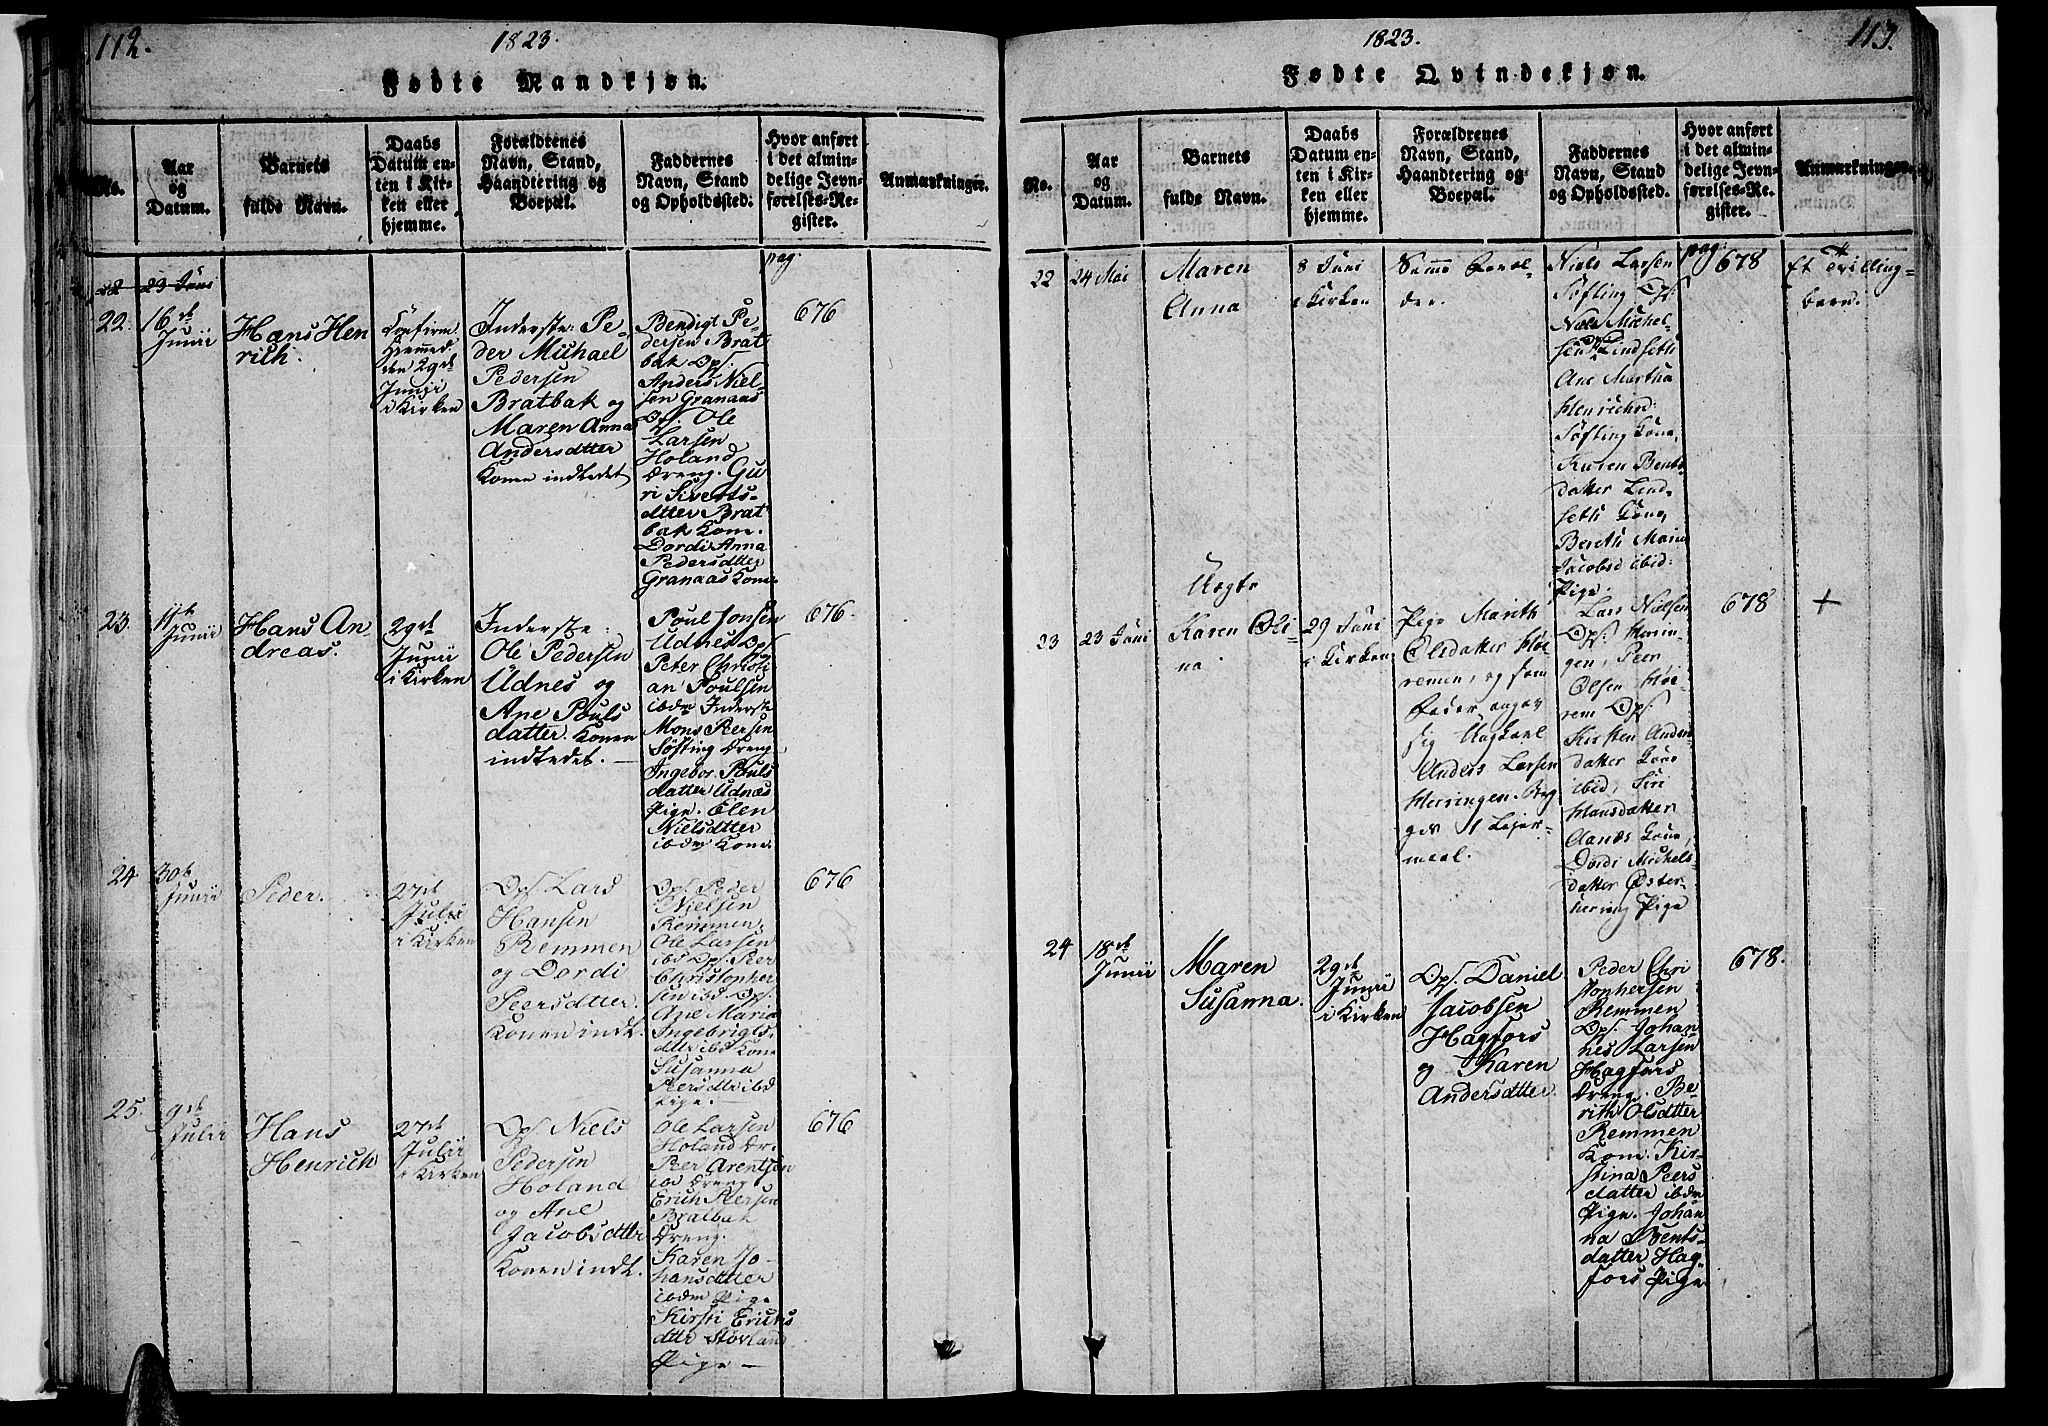 112.
1823.
Fødte Mandkjøn.
No.
Aar
og
Datum.
Barnets
fulde Navn.
Daabs
Datum en-
ten i Kir-
ken eller
hjemme.
Forældrenes
Navn, Stand,
Haandtering og
Boepæl.
Faddernes
Navn, Stand
og Opholdssted.
Hvor anført
i det almin-
delige Jevn-
førelses-Re-
gister.
Anmærkninger.
pag.
22 23 Juni
22.
16de
Junii
Hans Hen
rich.
Confirm.
Hjemmed.
den 29de
Junii
i Kirken
Inderste: Pe-
der Michael
Pedersen
Bratbak og
Maren Anna
Andersdtter
Konen indledet
Bendigt Pe-
dersen Brat
bak Ops.
Anders Niel-
sen Granaas
Ops. Ole
Larsen
Holand
Dreng. Gu
ri Siverts-
dtter Brat
bak Kone.
Dordi Anna
Pedersdtter
Granaas Kone
676
23.
Junii
Hans An-
dreas.
29de
Junii
i Kirken
Inderste:
Ole Pedersen
Udnes og
Ane Pouls
datter. Konen
indledet.
Poul Jonsen
Udnes Ops.
Peter Christi
an Poulsen
ibdm Inderste
Mons Peersen
Søfting Dreng
Ingebor. Pouls
datter Udnæs
Pige. Elen
Nielsdtter
ibdm Kone.
676
24
30te
Junii
Peder.
27de
Julii
i Kirken
Ops. Lars
Hansen
Remmen
og Dordi
Peersdtter.
Konen indl.
Ops. Peder
Nielsen
Remmen.
Ole Larsen
ibd Ops. Peer
Christopher
sen ibd Ops.
Ane Maria
Ingebrigts-
dttr ibd Kone
Susanna
Peersdtr ibd
Pige.
676
25.
9de
Julii
Hans
Henrich
27de
Julii
i Kirken
Ops. Niels
Pedersen
Holand
og Ane
Jacobsdttr
Konen indl.
Ole Larsen
Holand Dr.
Peer Arentsen
ibd Dreng
Erich Peersen
Bratbak
Dreng.
Karen Jo-
hansdtter
ibdm Pige
Kirsti Erichs
dttr Støvland
Pige —
676
113.
1823.
Fødte Qvindekjøn.
No.
Aar
og
Datum.
Barnets
fulde Navn.
Daabs
Datum en-
ten i Kir-
ken eller
hjemme.
Forældrenes
Navn, Stand,
Haandtering og
Boepæl.
Faddernes
Navn, Stand
og Opholdssted.
Hvor anført
i det almin-
delige Jevn-
førelses-Re-
gister.
Anmærkninger.
22
24 Mai
Maren
Anna
8 Juni
i Kirken
Samme Foræl-
dre.
Niels Larsen
Søfting Ops:
Niels Michel-
sen Lindseth
Ane Martha
Henrichsd:
Søfting Kone,
Karen Bents-
datter Lind-
seth Kone,
Bereth Maria
Jacobsd ibid:
Pige.
pag: 678
Et Tvilling-
barn.
23
23 Juni
Uægte
Karen Oli-
na
29 Juni
i Kirken
Pige Marith
Olsdatter Høi-
remen, og som
Fader angav
sig Ungkarl
Anders Larsen
Herringen. Beg
ges 1 Lejer-
maal.
Lars Nielsen
Ops: Herin-
gen, Peer
Olsen Høi-
rem Ops:
Kirsten Anders
datter Kone
ibid, Siri
Hansdatter
Aanæs Kone,
Dordi Michels-
datter Øster-
hering Pige
678
+
24
18de
Junii
Maren
Susanna.
29de
Junii
i Kirken
Ops. Daniel
Jacobsen
Hagfors
og Karen
Andersdtter.
Peder Chri
stophersen
Remmen
Ops. Johan-
nes Larsen
Hagfors
Dreng. Be-
rith Olsdtter
Remmen
Kone. Kir-
stina Peers
datter ibdm
Pige. Johan
na Bents-
datter Hag-
fors Pige
678.